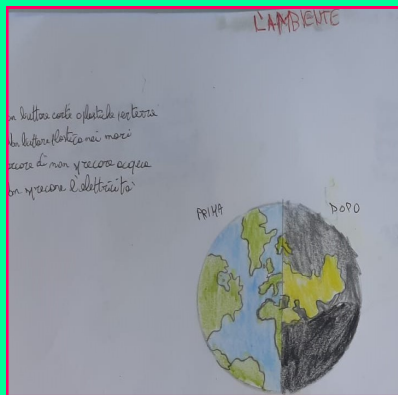 L'AMBIENTE
on buttare carte o plastiche per terra
Non buttare plastica nei mari
di non sprecare acqua
on sprecare l'elettricità
PRIMA
DOPO